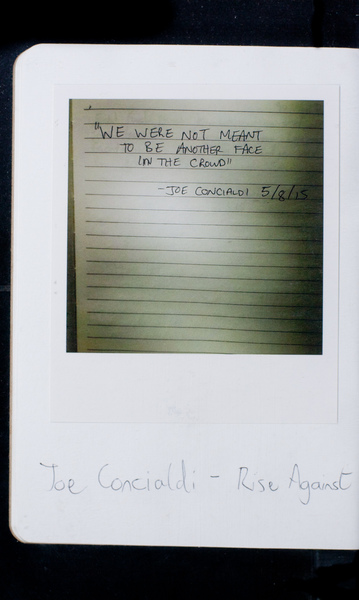 "WE WERE NOT MEANT
TO BE ANOTHER FACE
IN THE CROWD"
-JOE CONCIALDI 5/8/15
Joe Concialdi - Rise Against